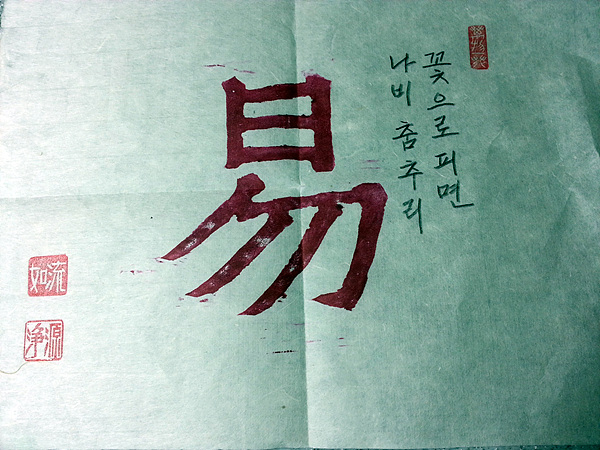 易
꽃으로피면
나비춤추리